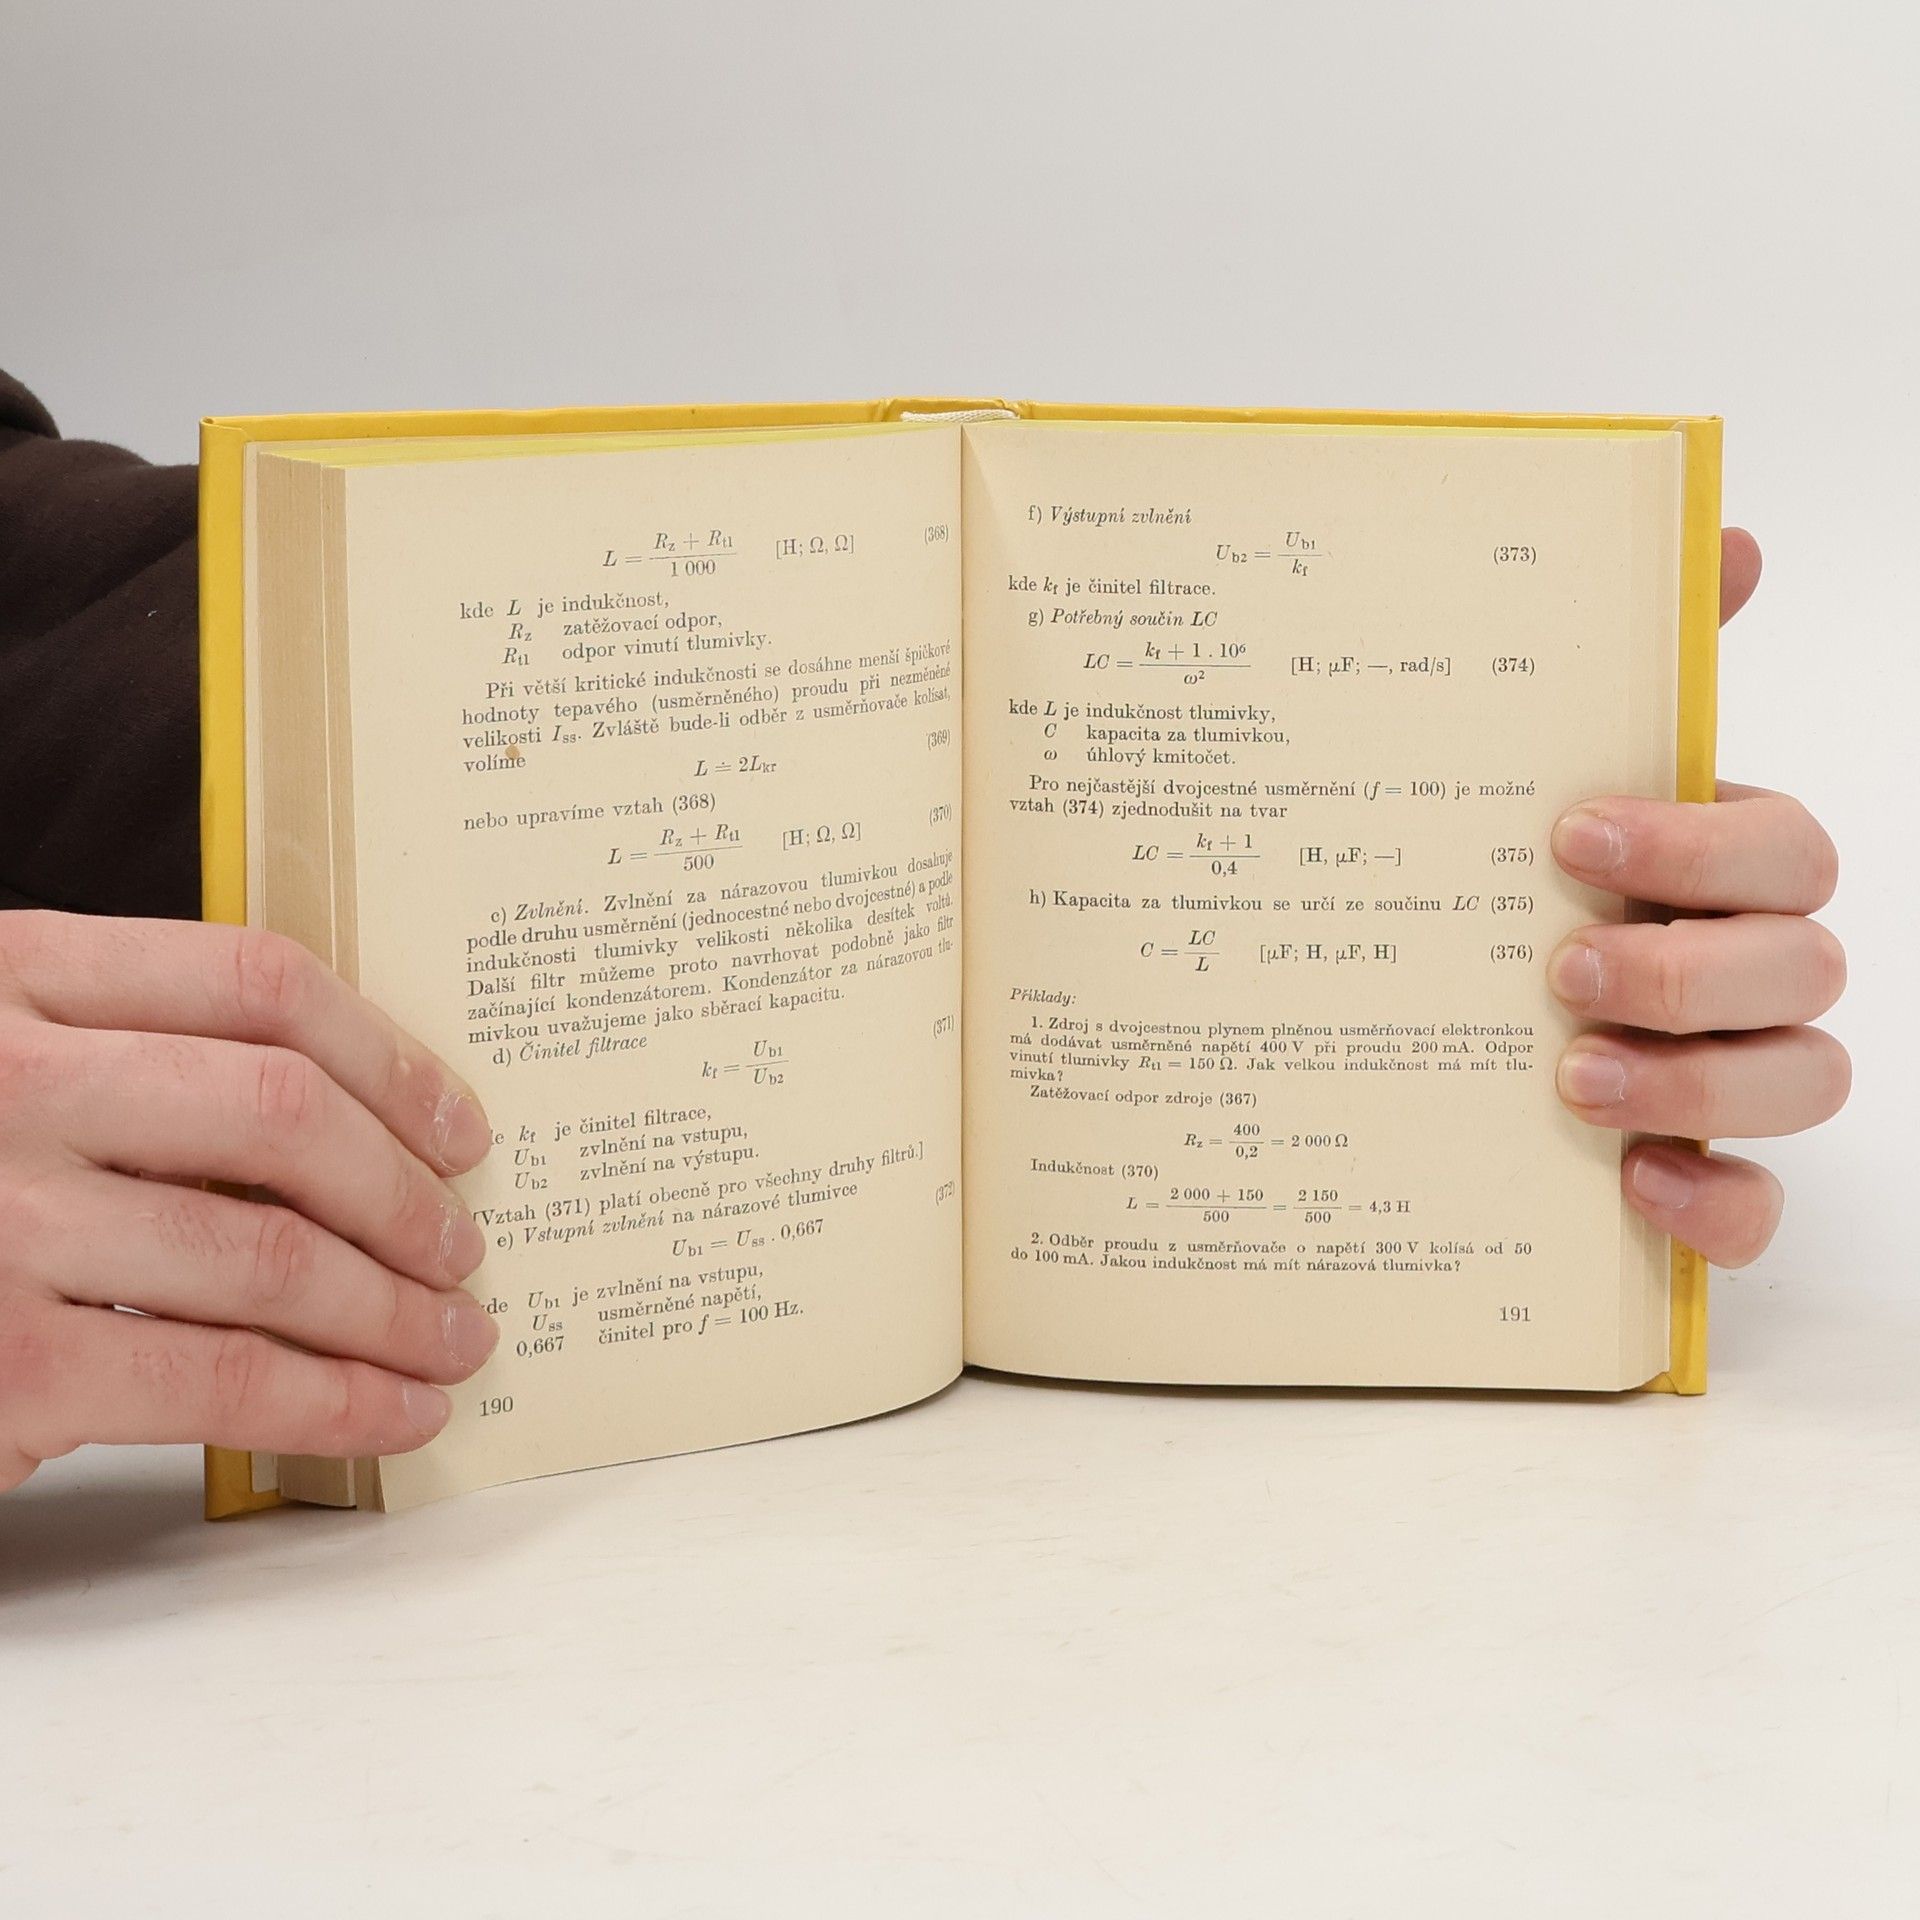 L = (R_z + R_tl)/1 000 [H; Ω, Ω] (368)
kde L je indukčnost,
R_z zatěžovací odpor,
R_tl odpor vinutí tlumivky.
Při větší kritické indukčnosti se dosáhne menší špičkové
hodnoty tepavého (usměrněného) proudu při nezměněné
velikosti I_ss. Zvláště bude-li odběr z usměrňovače kolísat,
volíme
L ≐ 2L_kr (369)
nebo upravíme vztah (368)
L = (R_z + R_tl)/500 [H; Ω, Ω] (370)
c) Zvlnění. Zvlnění za nárazovou tlumivkou dosahuje
podle druhu usměrnění (jednocestné nebo dvojcestné) a podle
indukčnosti tlumivky velikosti několika desítek voltů.
Další filtr můžeme proto navrhovat podobně jako filtr
začínající kondenzátorem. Kondenzátor za nárazovou tlu-
mivkou uvažujeme jako sběrací kapacitu.
d) Činitel filtrace
k_f = U_b1/U_b2 (371)
k_f je činitel filtrace,
U_b1 zvlnění na vstupu,
U_b2 zvlnění na výstupu.
[Vztah (371) platí obecně pro všechny druhy filtrů.]
e) Vstupní zvlnění na nárazové tlumivce
U_b1 = U_ss . 0,667 (372)
kde U_b1 je zvlnění na vstupu,
U_ss usměrněné napětí,
0,667 činitel pro f = 100 Hz.
190
f) Výstupní zvlnění
U_b2 = U_b1/k_f (373)
kde k_f je činitel filtrace.
g) Potřebný součin LC
LC = (k_f + 1 . 10⁶)/ω² [H; µF; —, rad/s] (374)
kde L je indukčnost tlumivky,
C kapacita za tlumivkou,
ω úhlový kmitočet.
Pro nejčastější dvojcestné usměrnění (f = 100) je možné
vztah (374) zjednodušit na tvar
LC = (k_f + 1)/0,4 [H, µF; —] (375)
h) Kapacita za tlumivkou se určí ze součinu LC (375)
C = LC/L [µF; H, µF, H] (376)
Příklady:
1. Zdroj s dvojcestnou plynem plněnou usměrňovací elektronkou
má dodávat usměrněné napětí 400 V při proudu 200 mA. Odpor
vinutí tlumivky R_tl = 150 Ω. Jak velkou indukčnost má mít tlu-
mivka?
Zatěžovací odpor zdroje (367)
R_z = 400/0,2 = 2 000 Ω
Indukčnost (370)
L = (2 000 + 150)/500 = 2 150/500 = 4,3 H
2. Odběr proudu z usměrňovače o napětí 300 V kolísá od 50
do 100 mA. Jakou indukčnost má mít nárazová tlumivka?
191